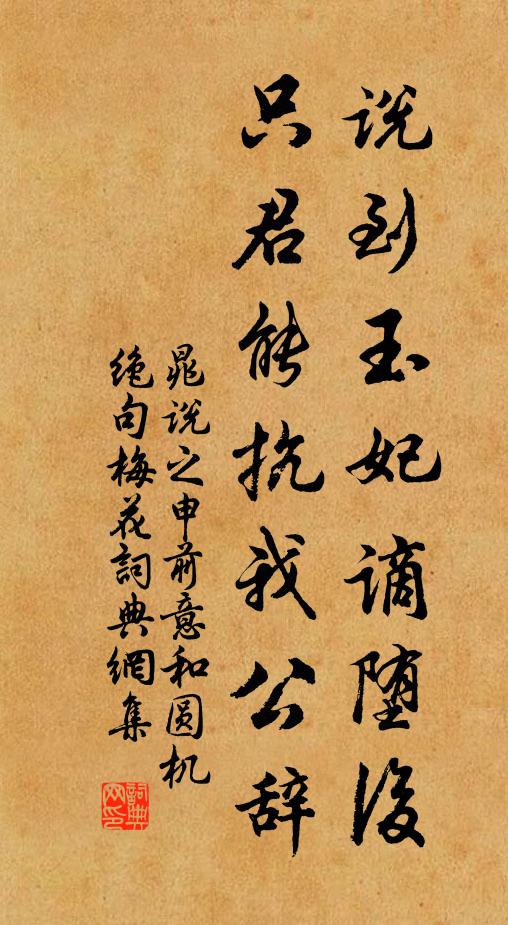 说到玉妃谪堕後
只君能抗我公辞
晁说之申前意和圆机
绝句梅花詞典網集
詞典网印